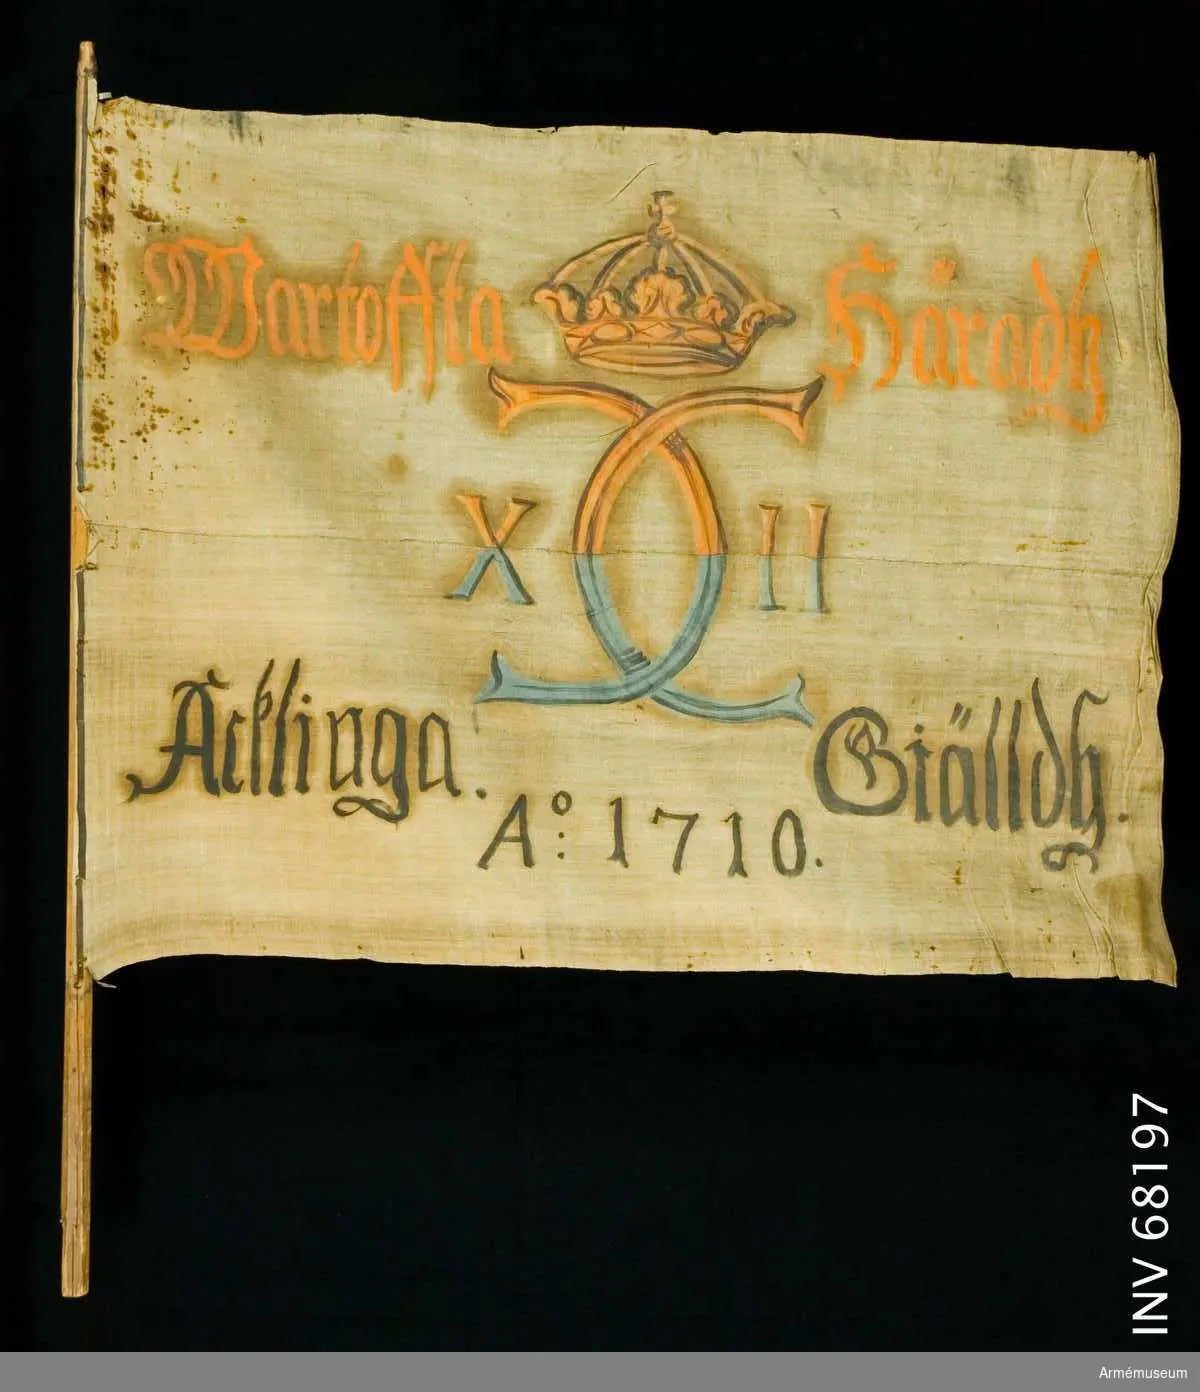 Wartofsta Häradh
X CC II
Acklinga. Giälldh.
Ao: 1710.
INV 68197
Armémuseum